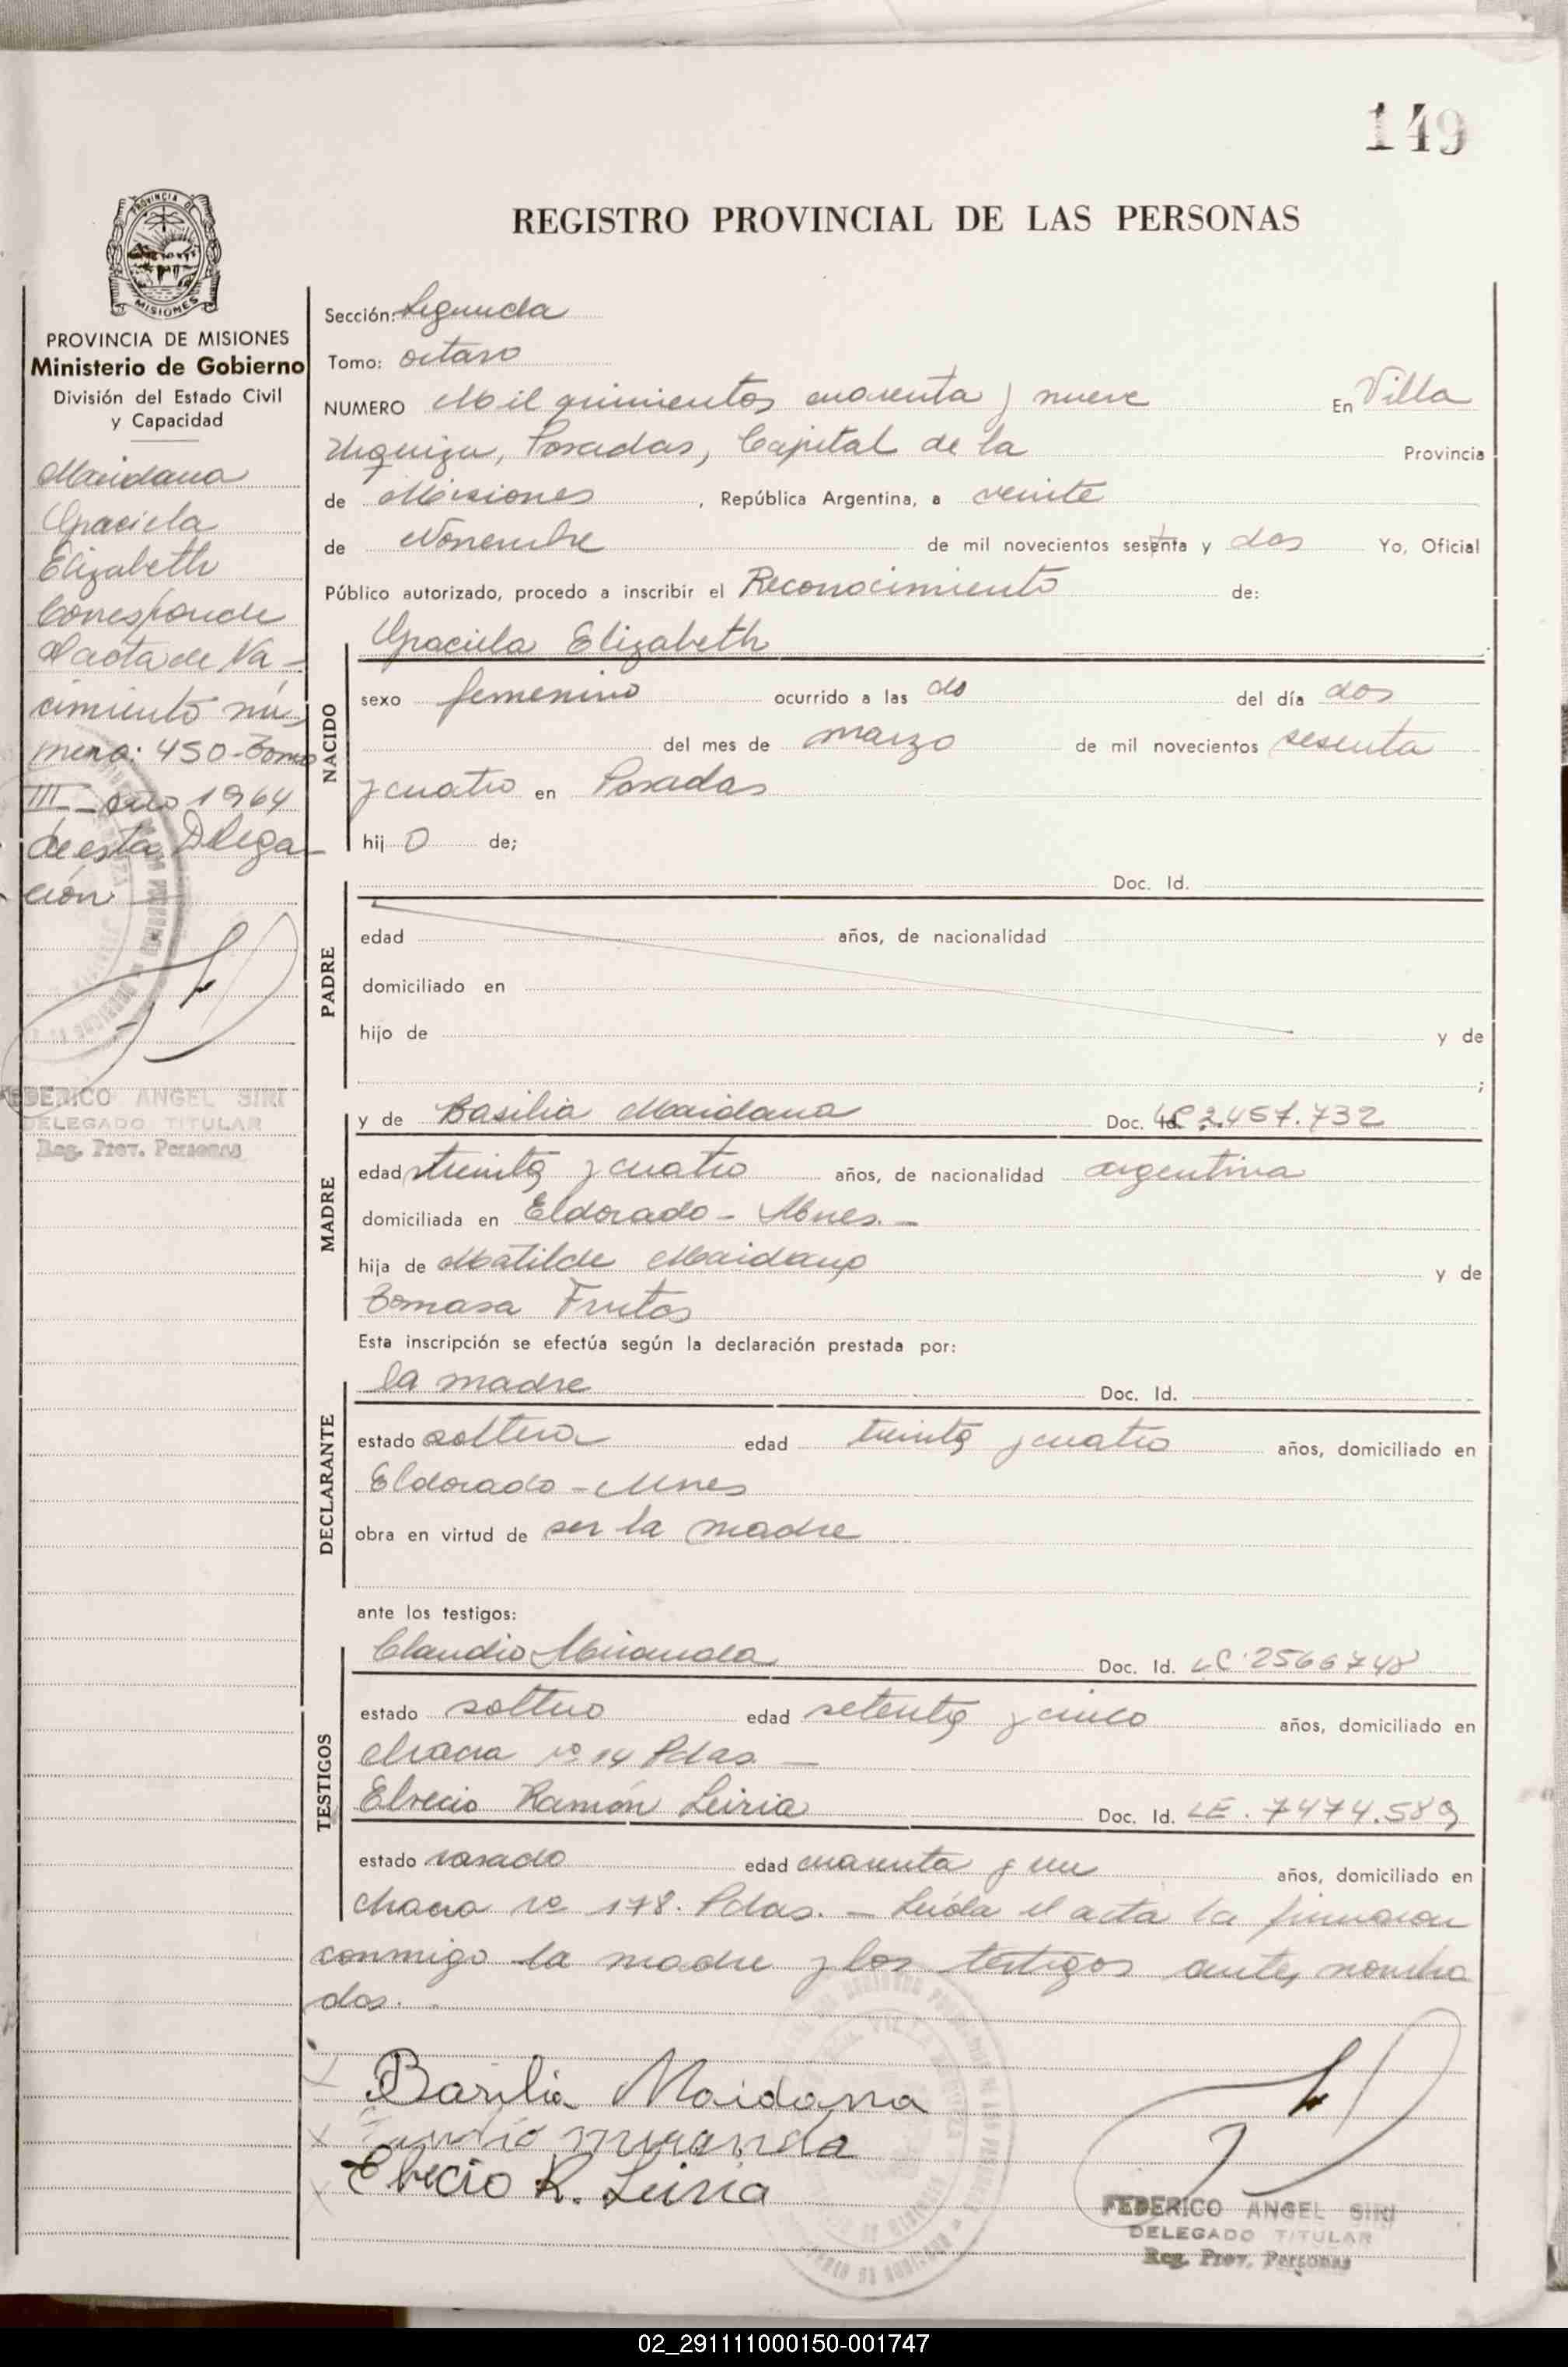 149
REGISTRO PROVINCIAL DE LAS PERSONAS
PROVINCIA DE MISIONES
MISIONES
PROVINCIA DE MISIONES
Ministerio de Gobierno
División del Estado Civil
y Capacidad
Maidana
Graciela
Elizabeth
Corresponde
Al acta de Na-
cimiento nú-
mero: 450-Tomo
III- año 1964
de esta Delega-
ción
FEDERICO ANGEL SIRI
DELEGADO TITULAR
Reg. Prov. Personas
Sección: Segunda
Tomo: octavo
NUMERO Mil quinientos cuarenta y nueve En Villa
Urquiza, Posadas, Capital de la Provincia
de Misiones, República Argentina, a veinte
de Noviembre de mil novecientos sesenta y dos Yo, Oficial
Público autorizado, procedo a inscribir el Reconocimiento de:
Graciela Elizabeth
NACIDO
sexo femenino ocurrido a las del día dos
del mes de marzo de mil novecientos sesenta
y cuatro en Posadas
hij o de;
Doc. Id.
PADRE
edad años, de nacionalidad
domiciliado en
hijo de y de
;
MADRE
y de Basilia Maidana Doc. 2.457.732
edad treinta y cuatro años, de nacionalidad argentina
domiciliada en Eldorado - Mnes. -
hija de Matilde Maidana y de
Tomasa Frutos
Esta inscripción se efectúa según la declaración prestada por:
DECLARANTE
la madre Doc. Id.
estado soltera edad treinta y cuatro años, domiciliado en
Eldorado - Mnes
obra en virtud de ser la madre
ante los testigos:
TESTIGOS
Claudio Miranda Doc. Id. LC 2566748
estado soltero edad setenta y cinco años, domiciliado en
chacra nº 14 Pdas. -
Elvecio Ramón Leiria Doc. Id. LE. 7474.589
estado casado edad cuarenta y un años, domiciliado en
chacra nº 178. Pdas. - Leída el acta la firmaron
conmigo la madre y los testigos antes nombra
dos.
Basilia Maidana
miranda
Elvecio R. Leiria
FEDERICO ANGEL SIRI
DELEGADO TITULAR
Reg. Prov. Personas
02_291111000150-001747